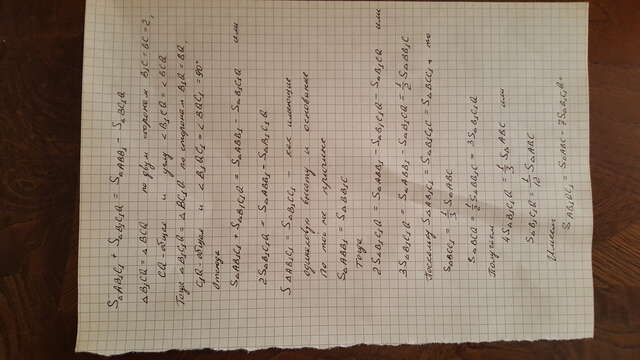 S△AB₁C₁ + S△B₁C₁Q = S△ABB₁ - S△BC₁Q
△B₁CQ = △BCQ по двум сторонам B₁C = BC = 2,
CQ - общая и углу ∠B₁CQ = ∠BCQ
Тогда △B₁C₁Q = △BC₁Q по сторонам B₁Q = BQ,
C₁Q - общая и ∠B₁QC₁ = ∠BQC₁ = 90°
Отсюда
S△AB₁C₁ + S△B₁C₁Q = S△ABB₁ - S△B₁C₁Q или
2S△B₁C₁Q = S△ABB₁ - S△B₁C₁Q
S△AB₁C₁ = S△B₁CC₁ - как имеющие
одинаковую высоту и основание
По той же причине
S△ABB₁ = S△BB₁C
Тогда
2S△B₁C₁Q = S△ABB₁ - S△B₁C₁Q - S△B₁CQ или
3S△B₁C₁Q = S△ABB₁ - S△B₁CQ = 1/2 S△BB₁C
Поскольку S△AB₁C₁ = S△B₁C₁C = S△BCC₁, то
S△BCC₁ = 1/3 S△ABC
S△BCQ = 1/2 S△BB₁C = 3S△B₁C₁Q
Получаем
4S△B₁C₁Q = 1/3 S△ABC или
S△B₁C₁Q = 1/12 S△ABC
Имеем
S AB₁QC₁ = S△ABC - 7S△B₁C₁Q =